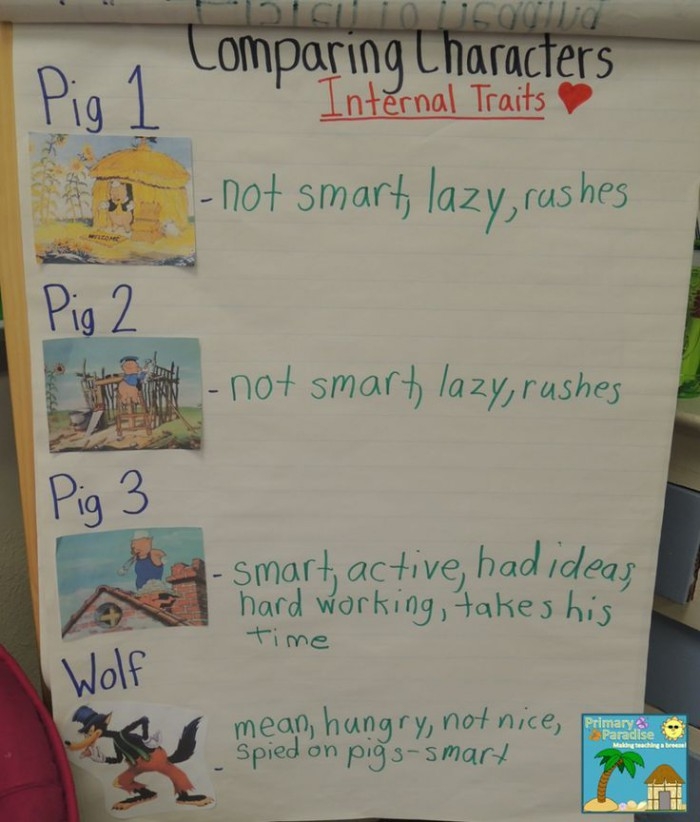 Comparing Characters
Internal Traits
Pig 1
WELCOME
- not smart, lazy, rushes
Pig 2
- not smart, lazy, rushes
Pig 3
- smart, active, had ideas,
hard working, takes his
time
Wolf
mean, hungry, not nice,
- spied on pigs-smart
Primary
Paradise
Making teaching a breeze!